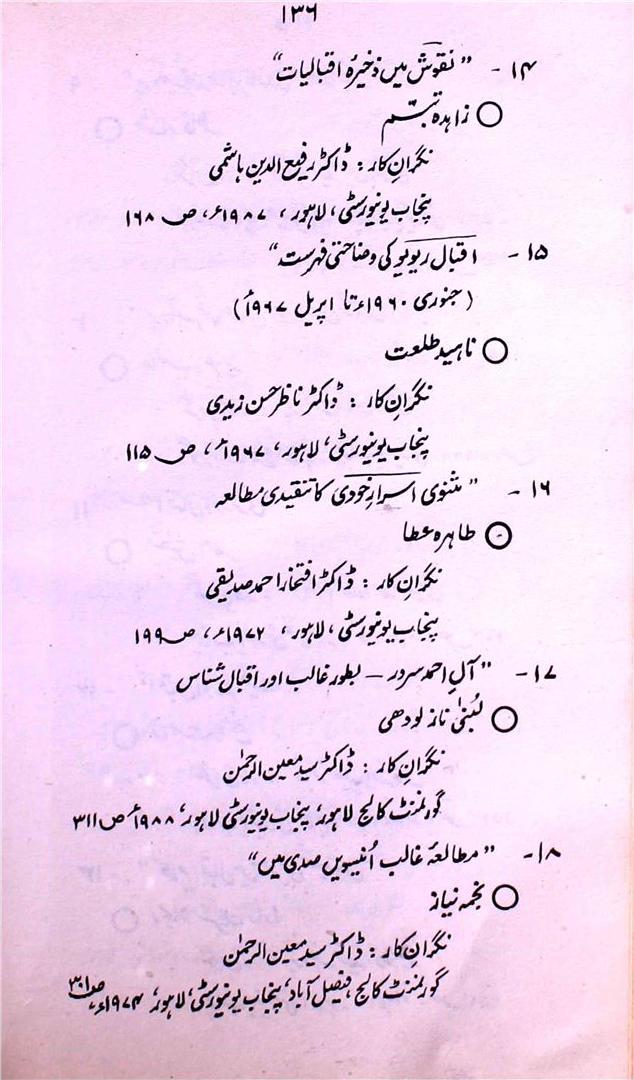 ۱۳۶
۱۴ - " نقوش میں ذخیرۂ اقبالیات "
○ زاہدہ تبسم
نگرانِ کار : ڈاکٹر رفیع الدین ہاشمی
پنجاب یونیورسٹی ، لاہور ، ۱۹۸۷ء، ص ۱۶۸
۱۵ - اقبال ریویو کی وضاحتی فہرست "
( جنوری ۱۹۶۰ء تا اپریل ۱۹۶۷ء )
○ ناہید طلعت
نگرانِ کار : ڈاکٹر ناظر حسن زیدی
پنجاب یونیورسٹی، لاہور ، ۱۹۶۷ء ، ص ۱۱۵
۱۶ - " مثنوی اسرارِ خودی کا تنقیدی مطالعہ
○ طاہرہ عطا
نگرانِ کار : ڈاکٹر افتخار احمد صدیقی
پنجاب یونیورسٹی ، لاہور ، ۱۹۷۲ء ، ص ۱۹۹
۱۷ - " آلِ احمد سرور — بطور غالب اور اقبال شناس
○ لبنیٰ ناز لودھی
نگرانِ کار : ڈاکٹر سید معین الرحمٰن
گورنمنٹ کالج لاہور، پنجاب یونیورسٹی لاہور، ۱۹۸۸ء ص ۳۱۱
۱۸ - " مطالعۂ غالب اُنیسویں صدی میں "
○ نجمہ نیاز
نگرانِ کار : ڈاکٹر سید معین الرحمٰن
گورنمنٹ کالج ، فیصل آباد، پنجاب یونیورسٹی، لاہور، ۱۹۷۴ء، ص ۳۰۱